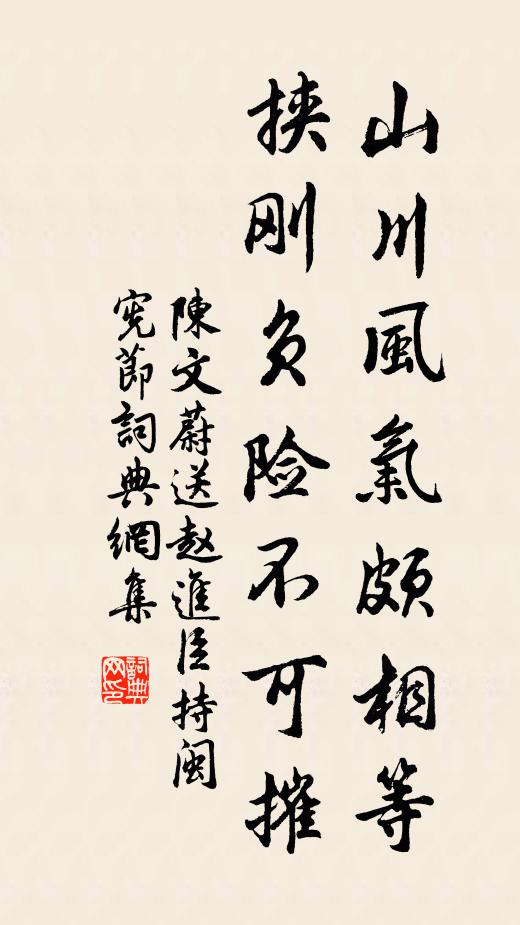 山川風氣頗相等
挟刚负险不可摧
陳文蔚送赵進臣持闽
宪節詞典網集
詞典网印